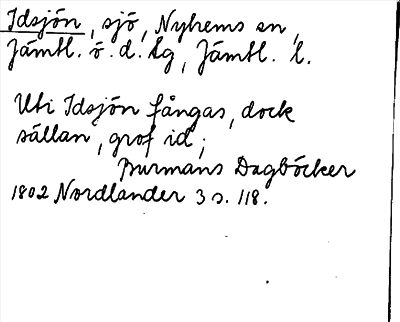 Idsjön, sjö, Nyhems sn,
Jämtl. ö. d. lg, Jämtl. l.
Uti Idsjön fångas, dock
sällan, grof id;
Burmans Dagböcker
1802 Nordlander 3 s. 118.